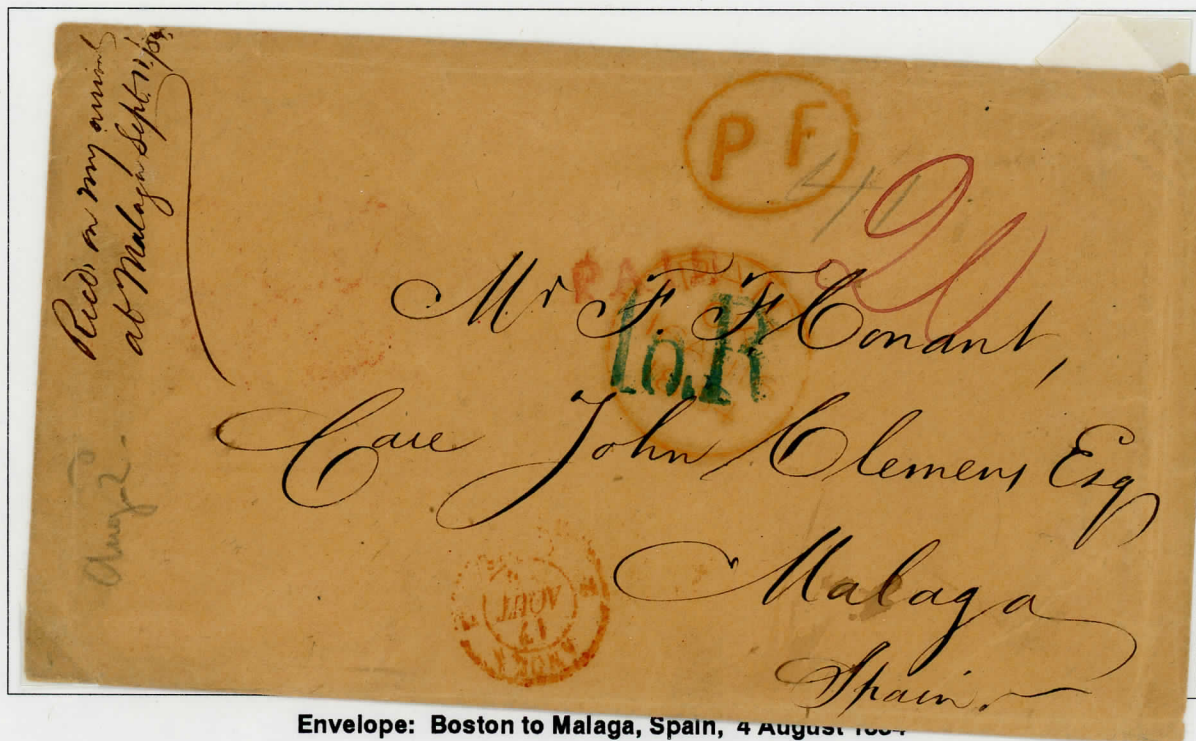 Recd. on my arrival
at Malaga Sept. 11/54
P F
41
20
PAID
Mr F. F Conant,
10.R
Care John Clemens Esq
Malaga
Spain.
17
AOUT
Envelope: Boston to Malaga, Spain, 4 August